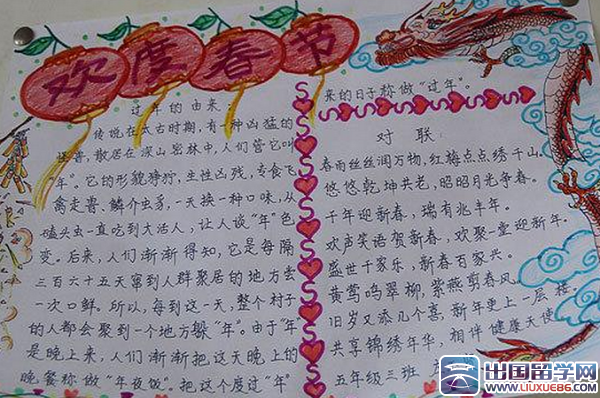 欢度春节
过年的由来：
传说在太古时期，有一种凶猛的
怪兽，散居在深山密林中，人们管它叫
年”。它的形貌狰狞，生性凶残，专食飞
禽走兽、鳞介虫豸，一天换一种口味，从
磕头虫一直吃到大活人，让人谈“年”色
变。后来，人们渐渐得知，它是每隔
三百六十五天窜到人群聚居的地方尝
一次口鲜。所以，每到这一天，整个村子
的人都会聚到一个地方躲“年”。由于“年
是晚上来，人们渐渐把这天晚上的
晚餐称做“年夜饭”。把这个度过“年”
来的日子称做“过年”。
对联：
春雨丝丝润万物，红梅点点绣千山。
悠悠乾坤共老，昭昭日月争春。
千年迎新春，瑞有兆丰年。
欢声笑语贺新春，欢聚一堂迎新年。
盛世千家乐，新春百家兴。
黄莺鸣翠柳，紫燕剪春风。
旧岁又添几个喜，新年更上一层楼
共享锦绣年华，相伴健康天使
五年级三班
出国留学网
www.liuxue86.com